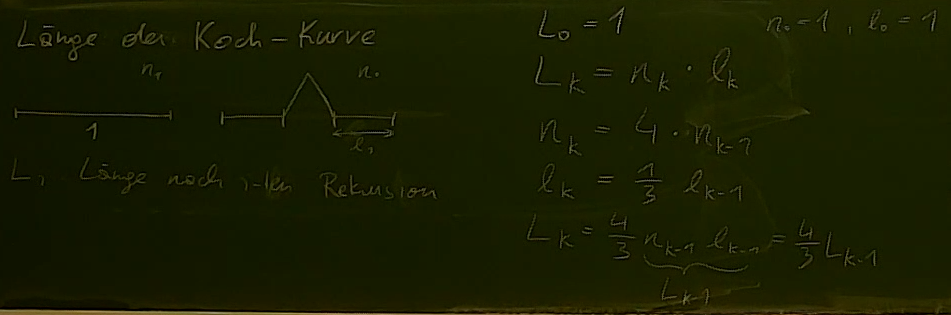 Länge der Koch-Kurve
n₁ n₀
1 l₁
L, Länge nach i-ten Rekursion
L₀ = 1 n₀ = 1, l₀ = 1
L_k = n_k · l_k
n_k = 4 · n_{k-1}
l_k = 1/3 l_{k-1}
L_k = 4/3 n_{k-1} l_{k-1} = 4/3 L_{k-1}
L_{k-1}